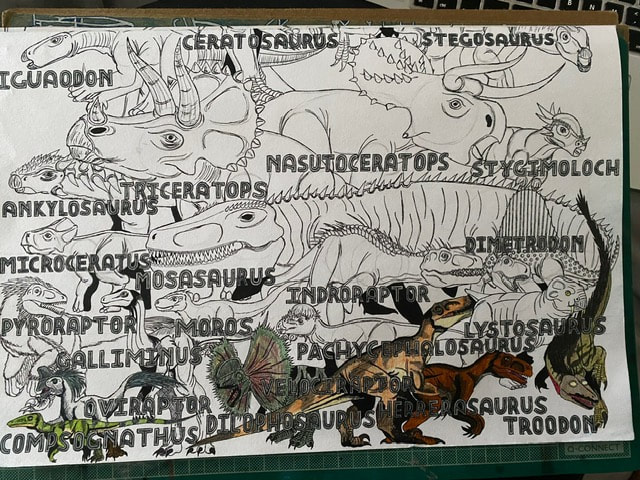 CERATOSAURUS
STEGOSAURUS
IGUAODON
NASUTOCERATOPS
STYGIMOLOCH
TRICERATOPS
ANKYLOSAURUS
DIMETRODON
MICROCERATUS
MOSASAURUS
INDRORAPTOR
PYRORAPTOR
MOROS
LYSTOSAURUS
GALLIMINUS
PACHYCEPHALOSAURUS
VELOCIRAPTOR
OVIRAPTOR
HERRERASAURUS
DILOPHOSAURUS
TROODON
COMPSOGNATHUS
Q-CONNECT